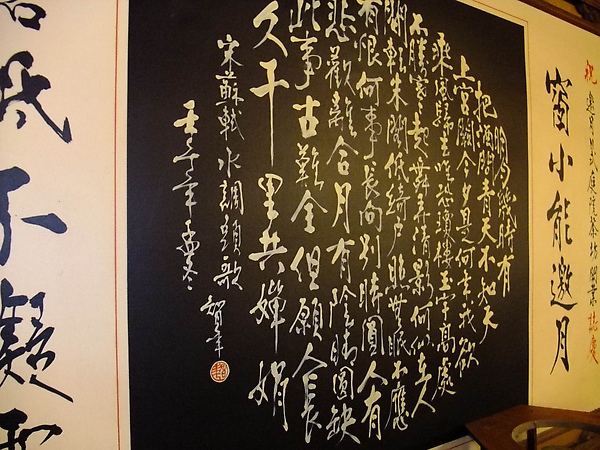 祝 庭院茶坊 開業誌慶
窗小能邀月
明月幾時有
把酒問青天不知天
上宮闕今夕是何年我欲
乘風歸去唯恐瓊樓玉宇高處
不勝寒起舞弄清影何似在人
間轉朱閣低綺戶照無眠不應
有恨何事長向別時圓人有
悲歡離合月有陰晴圓缺
此事古難全但願人長
久千里共嬋娟
宋蘇軾水調頭歌
壬午年孟冬
低不礙